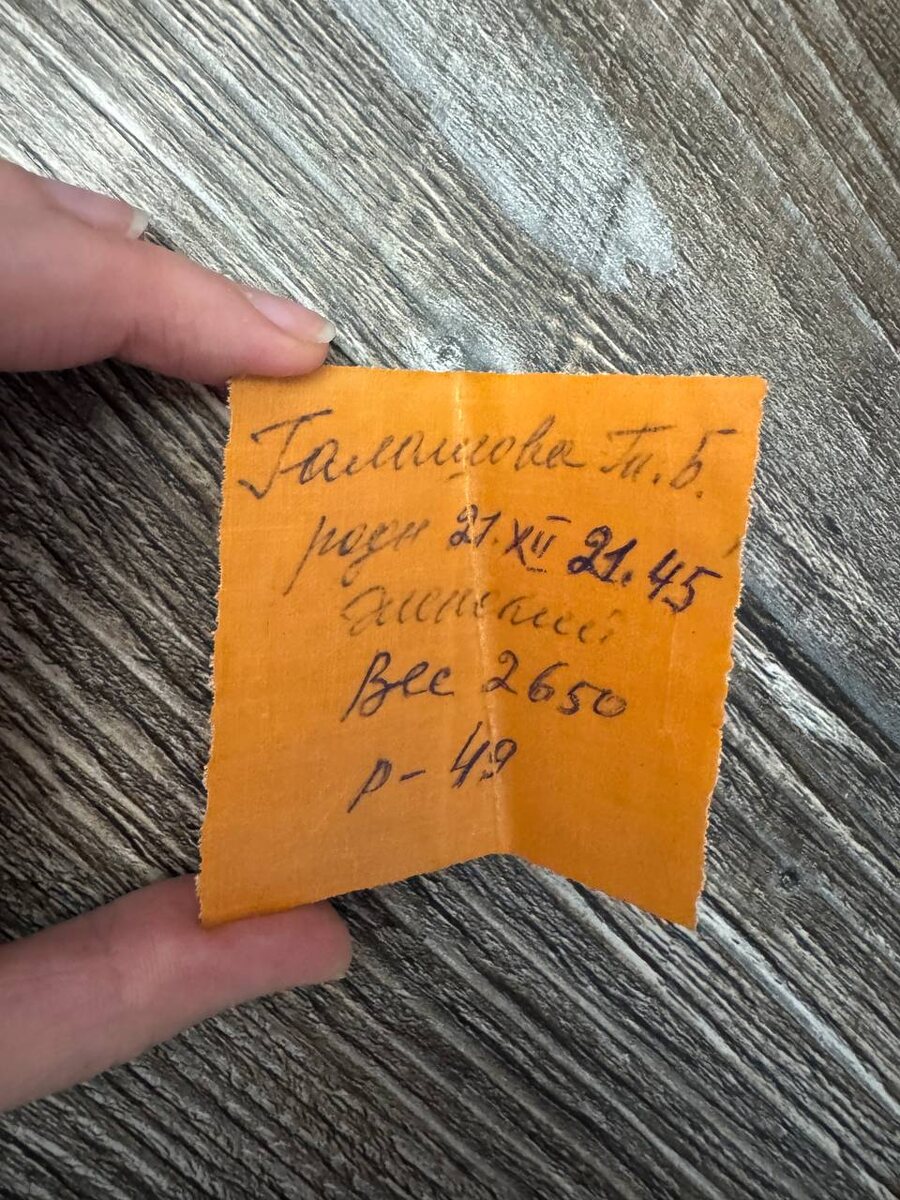 Галашова Т. Б.
роди 21.XII 21.45
Женский
Вес 2650
р- 49